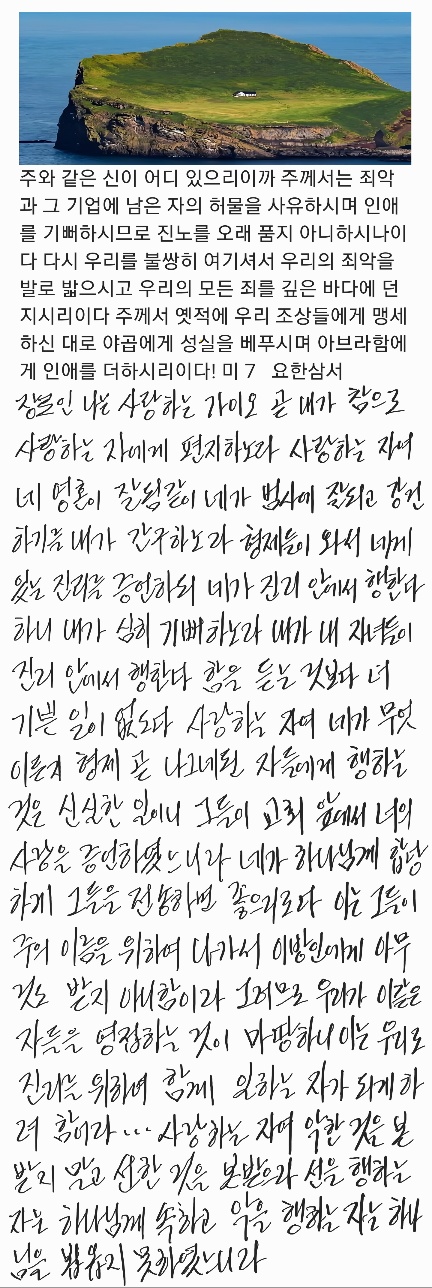 주와 같은 신이 어디 있으리이까 주께서는 죄악
과 그 기업에 남은 자의 허물을 사유하시며 인애
를 기뻐하시므로 진노를 오래 품지 아니하시나이
다 다시 우리를 불쌍히 여기셔서 우리의 죄악을
발로 밟으시고 우리의 모든 죄를 깊은 바다에 던
지시리이다 주께서 옛적에 우리 조상들에게 맹세
하신 대로 야곱에게 성실을 베푸시며 아브라함에
게 인애를 더하시리이다! 미 7 요한삼서
장로인 나는 사랑하는 가이오 곧 내가 참으로
사랑하는 자에게 편지하노라 사랑하는 자여
네 영혼이 잘됨같이 네가 범사에 잘되고 강건
하기를 내가 간구하노라 형제들이 와서 네게
있는 진리를 증언하되 네가 진리 안에서 행한다
하니 내가 심히 기뻐하노라 내가 내 자녀들이
진리 안에서 행한다 함을 듣는 것보다 더
기쁜 일이 없도다 사랑하는 자여 네가 무엇
이든지 형제 곧 나그네된 자들에게 행하는
것은 신실한 일이니 그들이 교회 앞에서 너의
사랑을 증언하였느니라 네가 하나님께 합당
하게 그들을 전송하면 좋으리로다 이는 그들이
주의 이름을 위하여 나가서 이방인에게 아무
것도 받지 아니함이라 그러므로 우리가 이같은
자들을 영접하는 것이 마땅하니 이는 우리로
진리를 위하여 함께 일하는 자가 되게 하
려 함이라... 사랑하는 자여 악한 것을 본
받지 말고 선한 것을 본받으라 선을 행하는
자는 하나님께 속하고 악을 행하는 자는 하나
님을 뵈옵지 못하였느니라